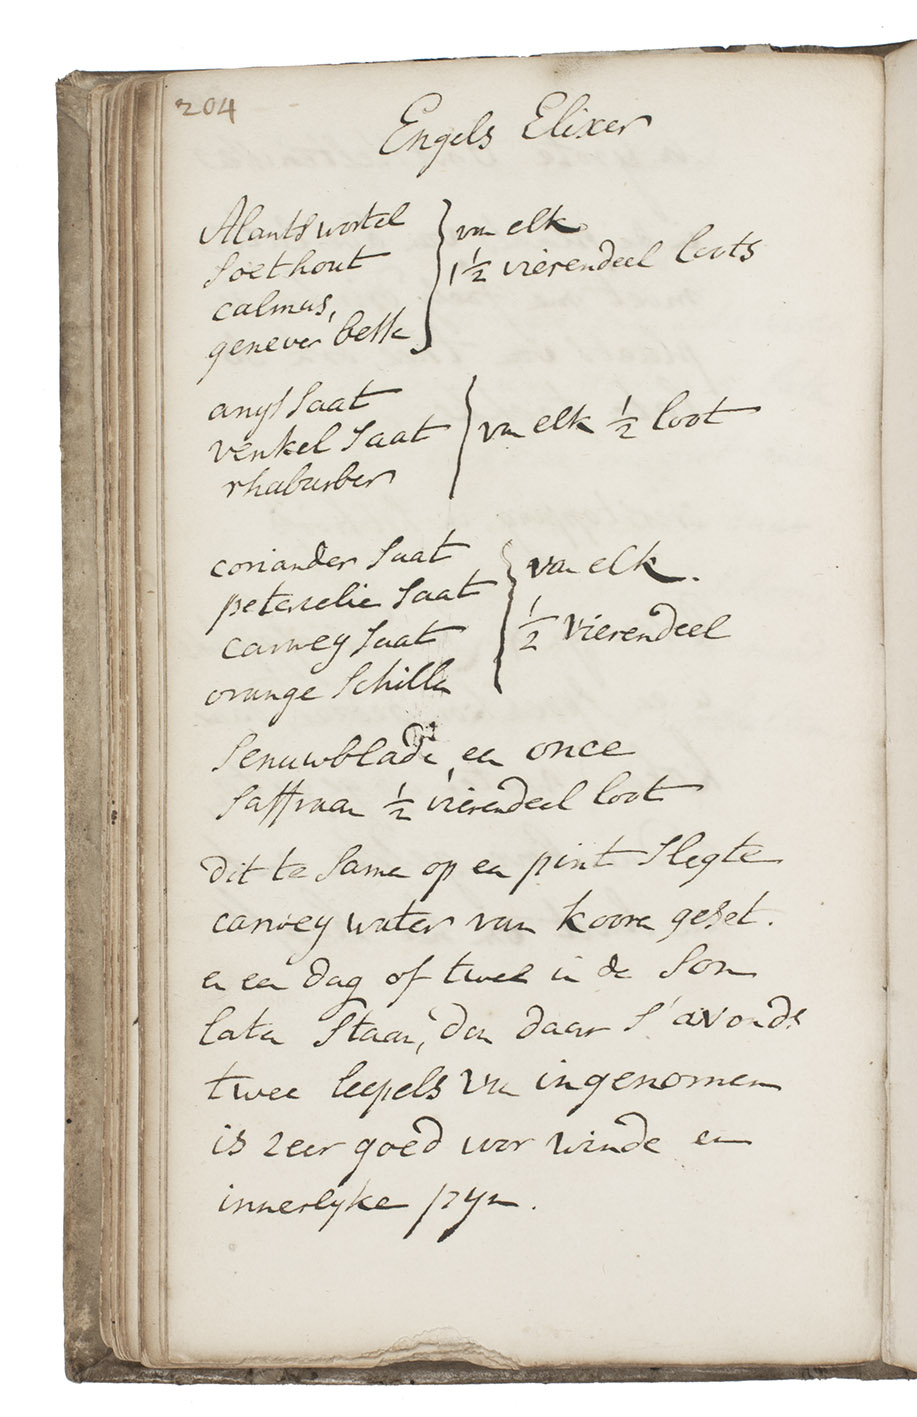 204
Engels Elixer
Alantswortel
Soethout
calmus,
genever besse
van elk
1 1/2 vierendeel loots
anyssaat
venkel saat
rhaburber
van elk 1/2 loot
coriander saat
petercelie saat
carwey saat
orange schille
van elk.
1/2 vierendeel
Senuwblade een once
Saffraan 1/2 vierendeel loot
dit te same op een pint slegte
carwey water van koorn geset.
en een dag of twee in de son
laten staan, dan daar s'avonds
twee leepels van ingenomen
is zeer goed voor winde en
innerlyke pyn.